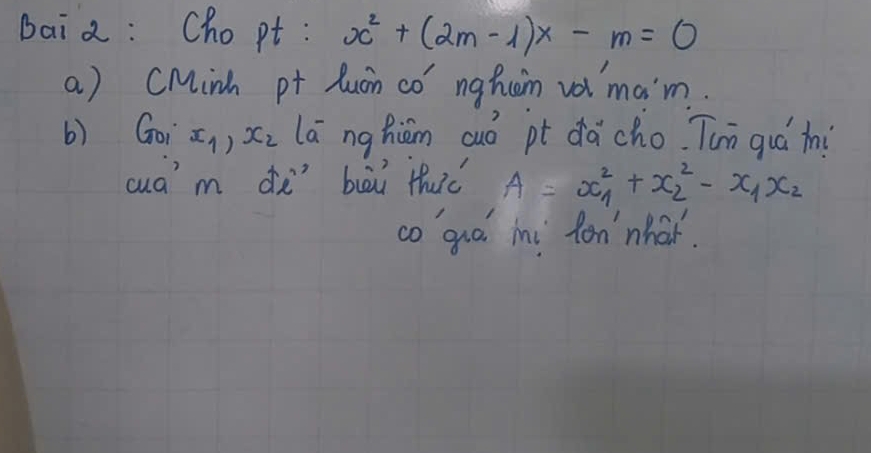 Bài 2 : Cho pt : x² + (2m - 1)x - m = 0
a) CMinh pt luôn có nghiệm với mọi m.
b) Gọi x₁, x₂ là nghiệm của pt đã cho. Tìm giá trị
của m để biểu thức A = x₁² + x₂² - x₁x₂
có giá trị lớn nhất.